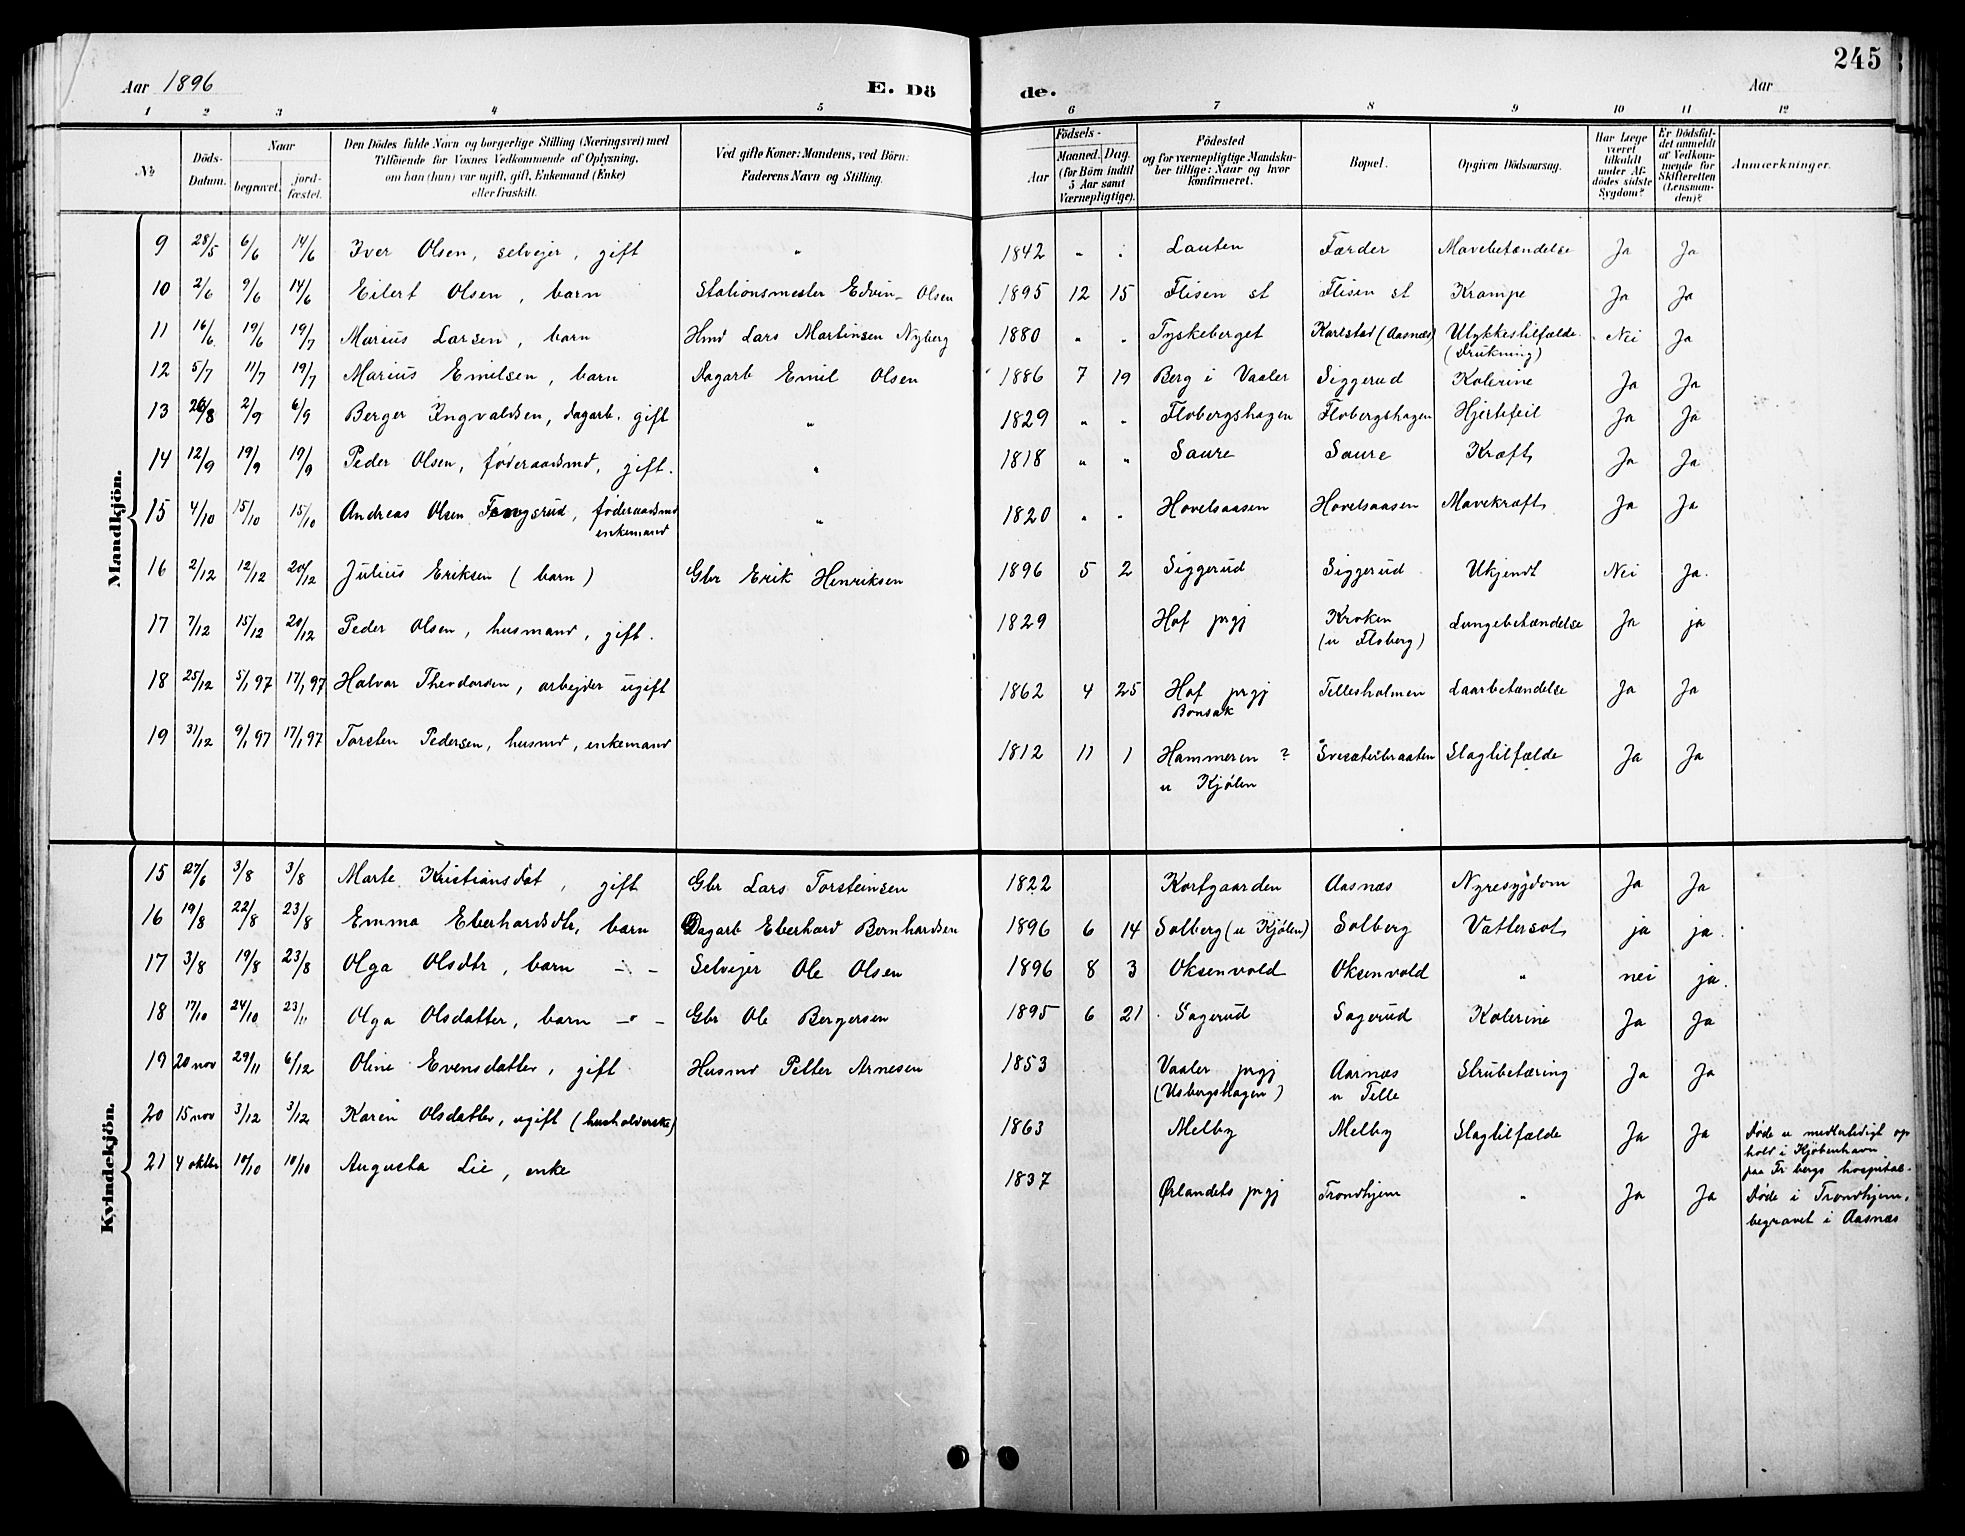 245
Aar 1896 E. Dö de. Aar
1 2 3 4 5 6 7 8 9 10 11 12
No
Döds-Datum.
Naar
begravet.
jord-fæstet.
Den Dödes fulde Navn og borgerlige Stilling (Næringsvei) med
Tilföiende for Voxnes Vedkommende af Oplysning,
om han (hun) var ugift, gift, Enkemand (Enke)
eller fraskilt.
Ved gifte Koner: Mandens, ved Börn:
Faderens Navn og Stilling.
Födsels-
Aar
Maaned. Dag.
(for Börn indtil
5 Aar samt
Værnepligtige).
Födested
og for værnepligtige Mandska-
ber tillige: Naar og hvor
konfirmeret.
Bopæl.
Opgiven Dödsaarsag.
Har Læge
været
tilkaldt
under Af-
dödes sidste
Sygdom?
Er Dödsfal-
det anmeldt
af Vedkom-
mende for
Skifteretten
(Lensman-
den)?
Anmærkninger.
Mandkjön.
9 28/5 6/6 14/6 Iver Olsen, selvejer, gift " 1842 " " Lauten Færder Mavebetændelse Ja Ja
10 2/6 9/6 14/6 Eilert Olsen, barn Stationsmester Edvin Olsen 1895 12 15 Flisen st Flisen st Krampe Ja Ja
11 16/6 19/6 19/7 Marius Larsen, barn Hmd Lars Martinsen Nyberg 1880 " " Tyskeberget Karlstad (Aasnæs) Ulykkestilfælde Nei Ja
(Drukning)
12 5/7 11/7 19/7 Marius Emilsen, barn Dagarb Emil Olsen 1886 7 19 Berg i Vaaler Siggerud Kolerine Ja Ja
13 26/8 2/9 6/9 Berger Ingvaldsen, dagarb. gift " 1829 " " Flobergshagen Flobergshagen Hjertefeil Ja Ja
14 12/9 19/9 19/9 Peder Olsen, føderaadsmd, gift. " 1818 " " Saure Saure Kræft Ja Ja
15 4/10 15/10 15/10 Andreas Olsen føderaadsmd " 1820 " " Hovelsaasen Hovelsaasen Mavekræft Ja Ja
enkemand
16 2/12 12/12 20/12 Julius Eriksen (barn) Gbr Erik Henriksen 1896 5 2 Siggerud Siggerud Ukjendt Nei Ja.
17 7/12 15/12 20/12 Peder Olsen, husmand, gift. 1829 Hof prgj Kroken Lungebetændelse Ja ja
(u Floberg)
18 25/12 5/1 97 17/1 97 Halvor Theodorsen, arbejder ugift 1862 4 25 Hof prgj Tellesholmen Laarbetændelse Ja Ja
Bonsak
19 31/12 9/1 97 17/1 97 Torsten Pedersen, husmd, enkemand 1812 11 1 Hammeren ? Slagtilfælde Ja Ja
u Kjølen
Kvindekjön.
15 27/6 3/8 3/8 Marte Kristiansdat, gift Gbr Lars Torsteinsen 1822 Korfgaarden Aasnæs Nyresygdom Ja Ja
16 19/8 22/8 23/8 Emma Eberhardsdtr, barn Dagarb Eberhard Bernhardsen 1896 6 14 Solberg (u Kjølen) Solberg Vattersot ja ja.
17 3/8 19/8 23/8 Olga Olsdtr, barn - " - Selvejer Ole Olsen 1896 8 3 Oksenvold Oksenvold " nei ja.
18 17/10 24/10 23/11 Olga Olsdatter, barn - " - Gbr Ole Bergersen 1895 6 21 Sagerud Sagerud Kolerine Ja Ja
19 20 nov 29/11 6/12 Oline Evensdatter, gift Husmd Petter Arnesen 1853 Vaaler prgj Aarnæs Strubetæring Ja Ja
(Usbergshagen) u Telle
20 15 nov 3/12 3/12 Karen Olsdatter, ugift (husholderske) 1863 Melby Melby Slagtilfælde Ja Ja Døde u midlertidigt op
hold i Kjøbenhavn
paa hospital.
21 4 oktbr 10/10 10/10 Augusta Lie, enke 1837 Ørlandets prgj Trondhjem " Ja Ja Døde i Trondhjem,
begravet i Aasnæs